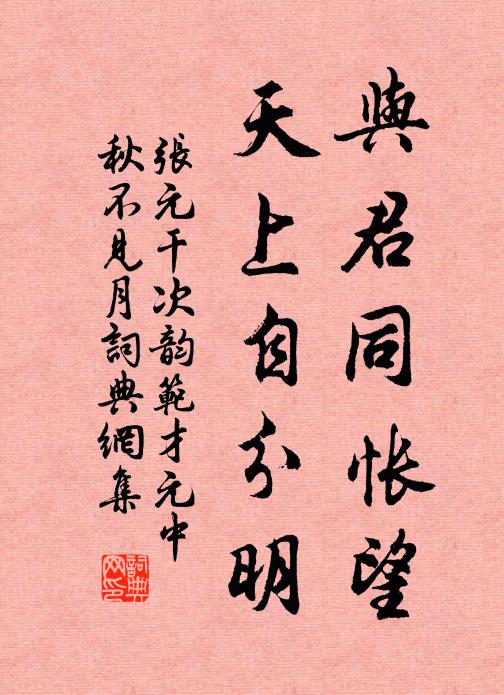 與君同悵望
天上自分明
張元干次韵範才元中
秋不見月詞典網集
詞典
网印